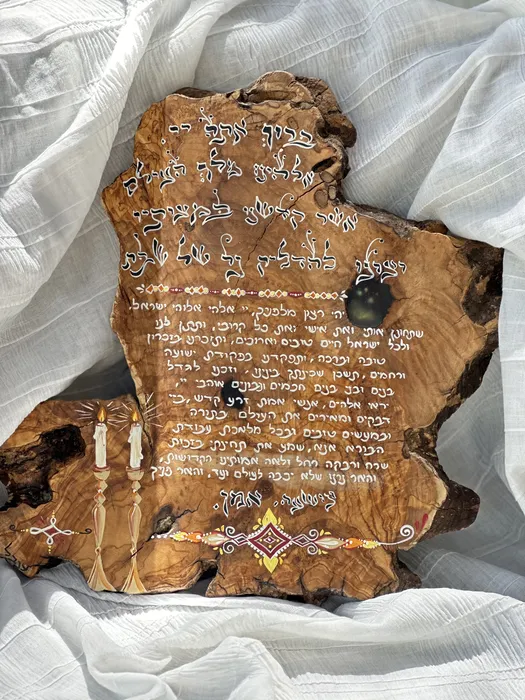 ברוך אתה יי
אלהינו מלך העולם
אשר קדשנו במצותיו
וציונו להדליק נר של שבת
יהי רצון מלפניך, יי אלהי אלוהי ישראל,
שתחונן אותי ואת אישי ואת כל קרובי, ותתן לנו
ולכל ישראל חיים טובים וארוכים, ותזכרנו בזכרון
טובה וברכה, ותפקדנו בפקודת ישועה
ורחמים, ותשכן שכינתך בינינו. וזכנו לגדל
בנים ובני בנים חכמים ונבונים אוהבי יי,
יראי אלהים, אנשי אמת זרע קדש, ביי
דבקים ומאירים את העולם בתורה
ובמעשים טובים ובכל מלאכת עבודת
הבורא. אנא, שמע את תחינתי בזכות
שרה ורבקה רחל ולאה אמותינו הקדושות,
והאר נרנו שלא יכבה לעולם ועד, והאר פניך
ונושעה. אמן.